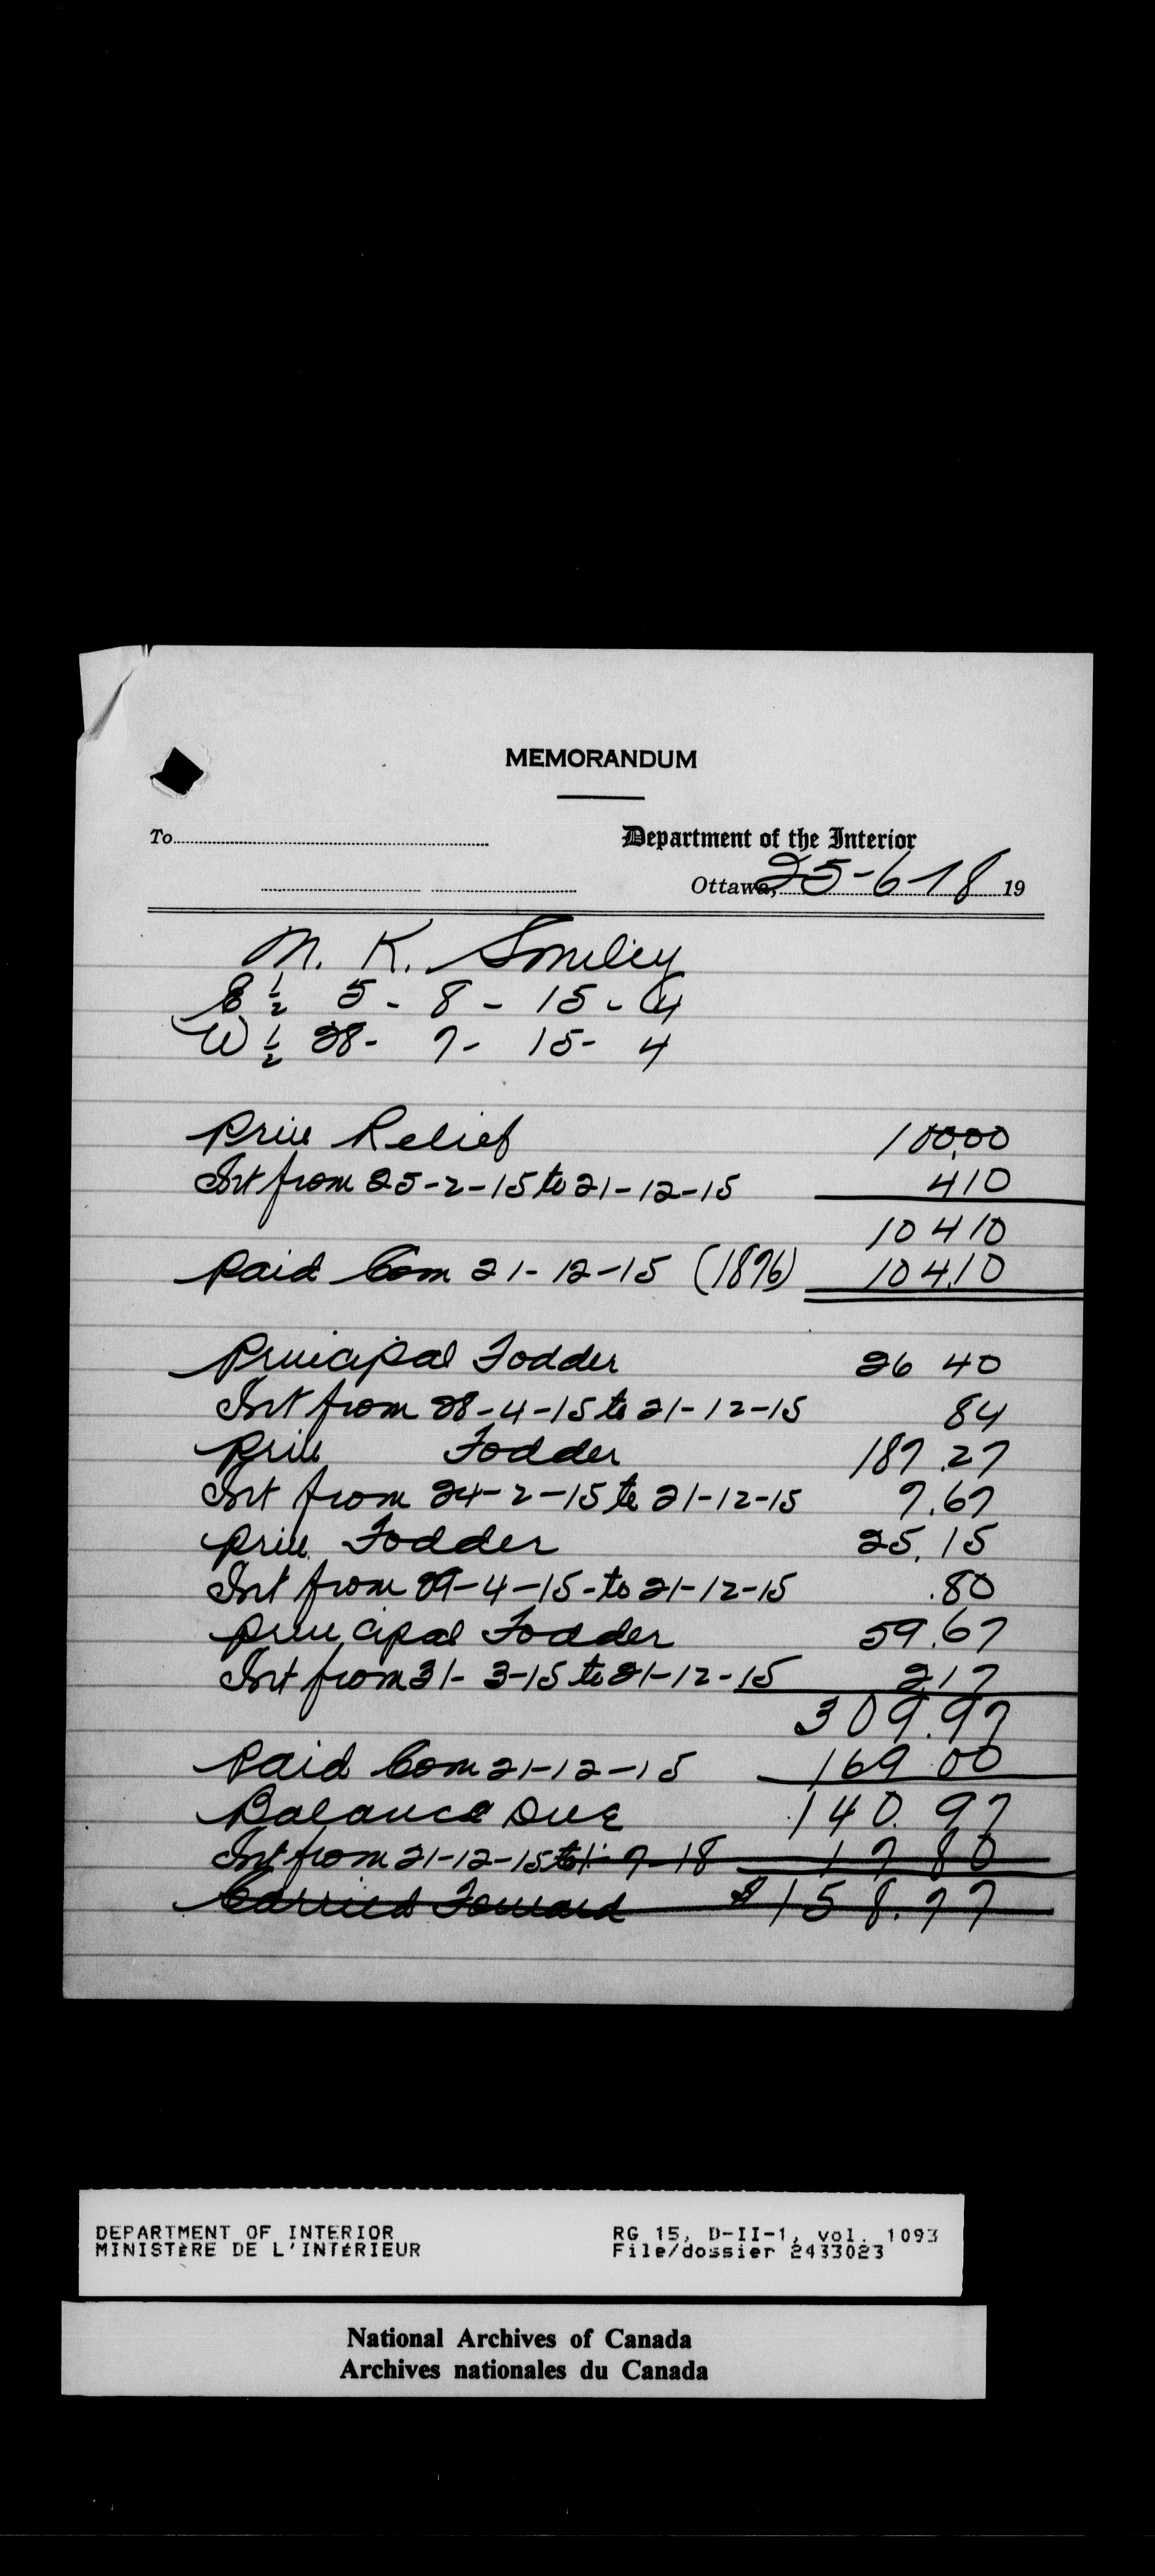 MEMORANDUM
To
Department of the Interior
Ottawa, 25-6-18 19
M. K. Smiley
E ½ 5 - 8 - 15 - 4
W ½ 28 - 7 - 15 - 4
Prin Relief 100.00
Int from 25-2-15 to 21-12-15 4 10
104 10
Paid Com 21-12-15 (1896) 104.10
Principal Fodder 26 40
Int from 28-4-15 to 21-12-15 84
Prin Fodder 187.27
Int from 24-2-15 to 21-12-15 7.67
Prin Fodder 25.15
Int from 29-4-15 - to 21-12-15 .80
Principal Fodder 59.67
Int from 31-3-15 to 21-12-15 2.17
309.97
Paid Com 21-12-15 169 00
Balance Due 140.97
Int from 21-12-15 to 1-7-18 17 80
Carried Forward $158.77
DEPARTMENT OF INTERIOR RG 15, D-II-1, vol. 1093
MINISTÈRE DE L'INTÉRIEUR File/dossier 2433023
National Archives of Canada
Archives nationales du Canada